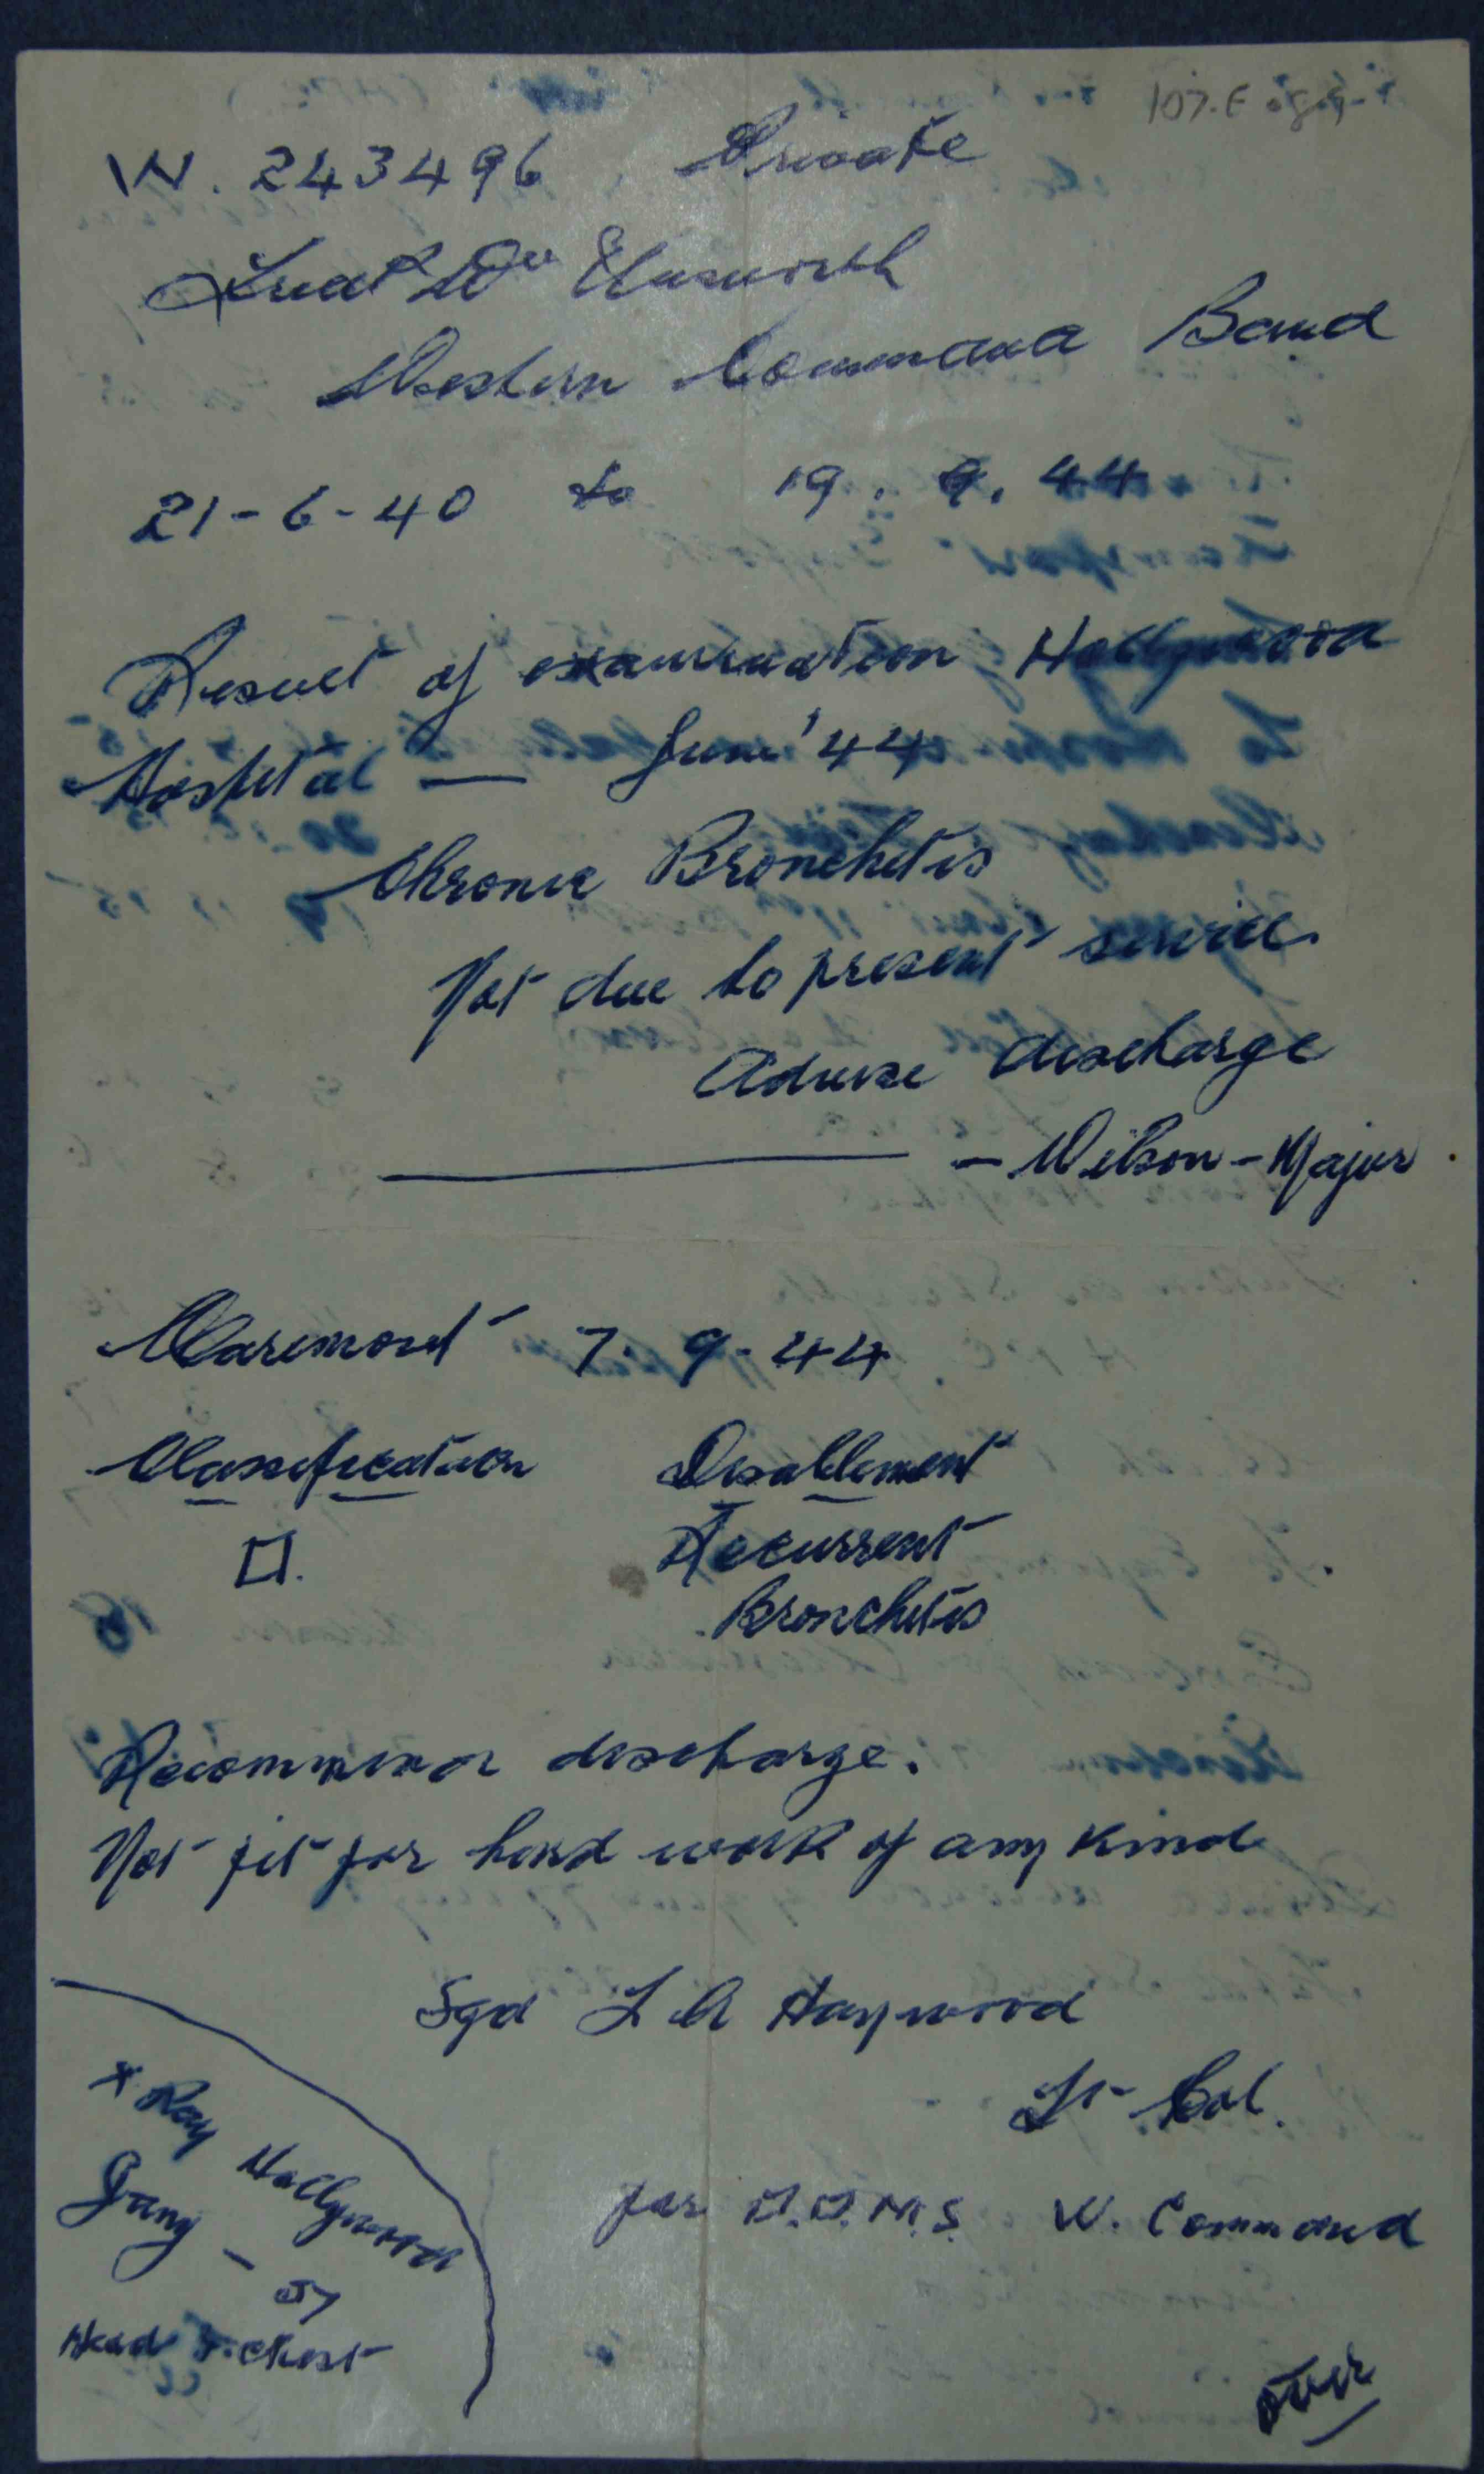 W. 243496 Private
Western Command Band
21-6-40 to 19. 9. 44
Result of examination Hollywood
Hospital — June '44
Chronic Bronchitis
Not due to present service
Advise discharge
— Wilson - Major.
Claremont 7. 9. 44
Classification Disablement
D. Recurrent
Bronchitis
Recommend discharge.
Not fit for hard work of any kind
Sgd L A Haywood
Lt Col.
for D.D.M.S. W. Command
X Ray Hollywood
Jany - 
Head & Chest
over